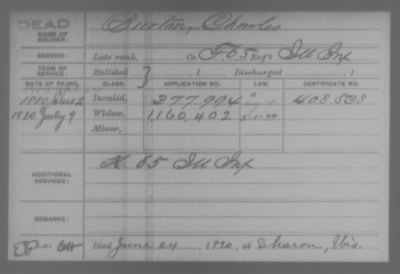 DEAD
NAME OF SOLDIER: Burton, Charles
SERVICE: Late rank, Co. F 65 Reg't Ill Inf
TERM OF SERVICE: Enlisted , 1 Discharged , 1
DATE OF FILING. CLASS. APPLICATION NO. LAW. CERTIFICATE NO.
1880 June 2 Invalid, 377.994 408.533
1920 July 9 Widow, 1,160,402 5-1-20
Minor,
ADDITIONAL SERVICES: H 65 Ill Inf
REMARKS:
Died June 24, 1920, at Sharon, Wis.